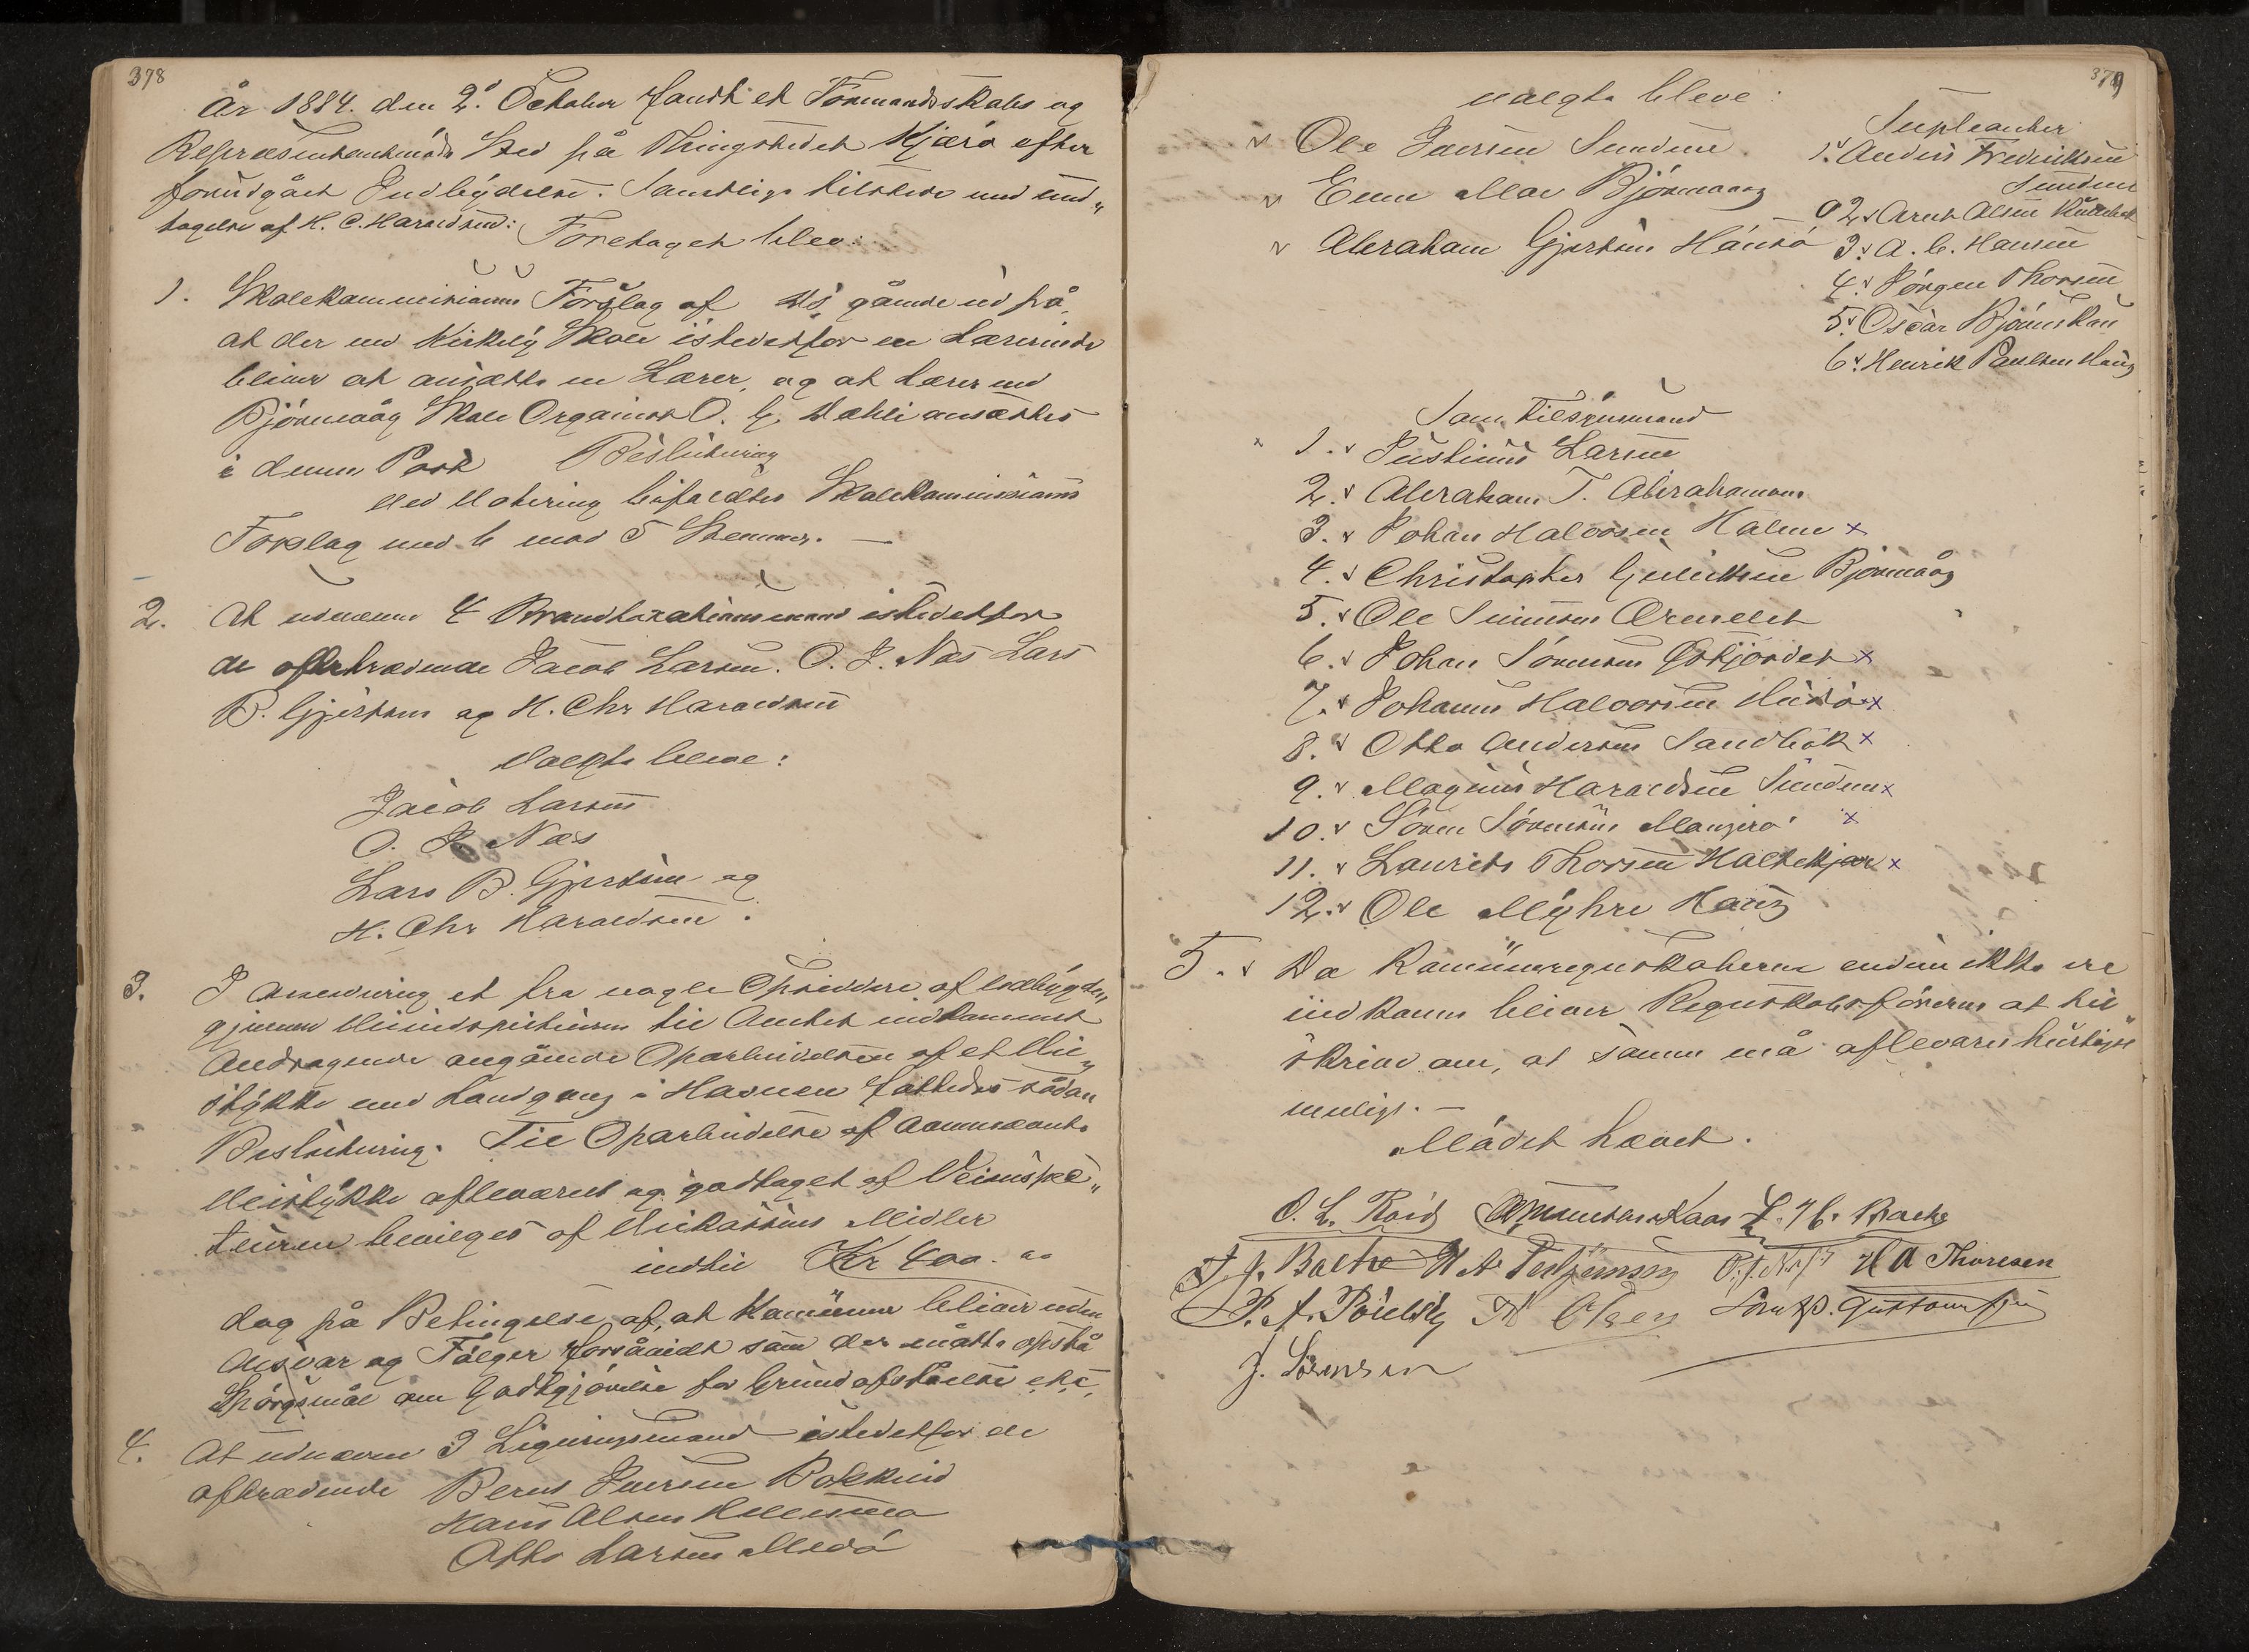 378
År 1884. den 2d October fandt et Formandsskabs og
Repræsentantmöde Sted på Thingstedet Kjærö efter
forudgået Indbydelse. Samtlige tilstede med und„
tagelse af H. C. Haraldsen: Foretaget blev:
1. Skolekommissionens Forslag af gående ud på,
at der ved Kirkeby Skole istedetfor en Lærerinde
bliver at ansætte en Lærer, og at Lærer ved
Björnevåg Skole Organist O. G. Dahl ansættes
i denne Post Beslutning
Med Votering bifaldtes Skolekommissionens
Forslag med 6 mod 5 Stemmer. —
2. At udnævne 4 Brandtaxationsmænd istedetfor
de aftrædende Jacob Larsen. O. J. Næs Lars
B. Gjertsen og H. Chr Haraldsen
Valgte bleve:
Jacob Larsen
O. J. Næs
Lars B. Gjertsen og
H. Chr Haraldsen.
3. I Anledning et fra nogle Opsiddere af
gjennem Veiinspecteuren til Amtet indkommet
Andragende angående Oparbeidelsen af et Vei„
stykke med Landgang i Havnen fattedes sådan
Beslutning. Til Oparbeidelse af omnævnte
Veistykke afleveret og godtaget af Veiinspec„
teuren bevilges af Veikassens Midler
indtil Kr 400. 00
dog på Betingelse af, at Kommunen bliver uden
Ansvar og Fölger forsåvidt som der måtte opstå
Spörgsmål om Godtgjörelse for Grundafståelse etc.
4. At udnævne 3 Ligningsmænd istedetfor de
aftrædende Bernt Iversen Bokkeid
Hans Olsen
Otto Larsen Medö
379
valgte bleve:
Ole Iversen Sundene
Even Moe Björnevaag
Abraham Gjertsen Håusö
Supleanter
1. Anders Fredriksen
Sundene
2. Arent Olsen
3. A. C. Hansen
4. Jörgen Thorsen
5. Oscar Björnskau
6. Henrik Paulsen Haug
Som Tilsynsmænd
1. Justinus Larsen
2. Abraham T. Abrahamsen
3. Johan Halvorsen Halmen x
4. Christopher Gulliksen Björnevåg
5. Ole Simonsen Ormelet
6. Johan Sörensen Gskjordet x
7. Johannes Halvorsen Hvasö x
8. Otto Andersen Sandbök x
9. Magnus Haraldsen Sundene x
10. Sören Sörensen Mangerö x
11. Laurits Thorsen Holtekjær x
12. Ole Myhre Haug
5. Da Kommuneregnskaberne endnu ikke ere
indkomne bliver Regnskabsförerne at til„
skrive om, at samme må afleveres hurtigst
muligt. —
Mödet hævet.
O. L. Röed Amundsen Kaas L. H. Backe
J. J. Bache H A Thoresen
Olsen
J. Sörensen